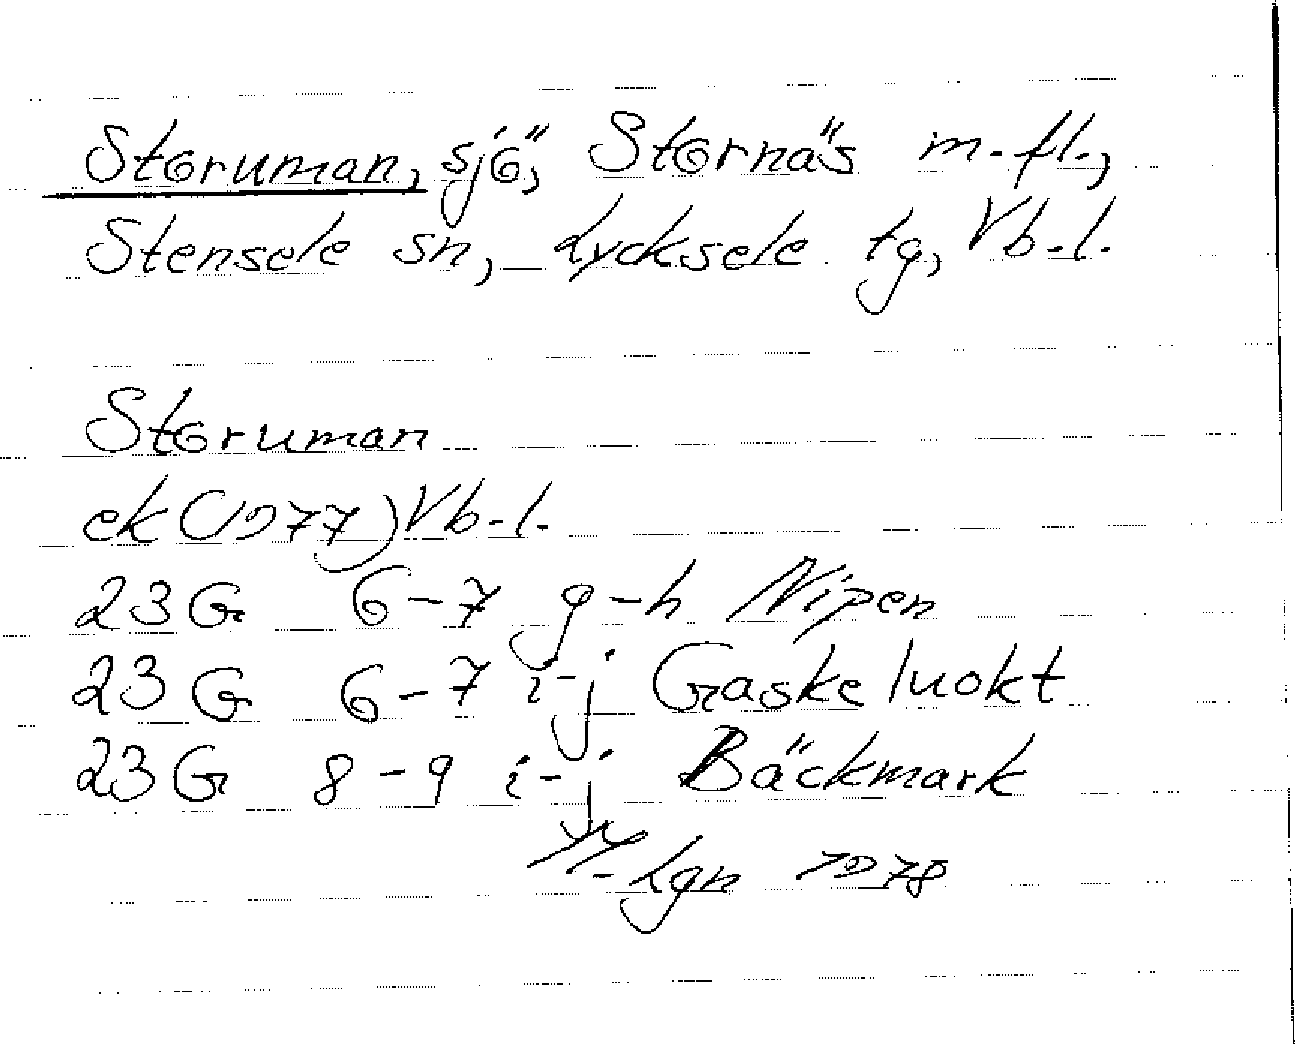 Storuman, sjö, Stornäs m.fl.,
Stensele sn, Lycksele tg, Vb.l.
Storuman
ek(1977)Vb.l.
23G 6-7 g-h Nipen
23G 6-7 i-j Gaskeluokt
23G 8-9 i-j Bäckmark
1978